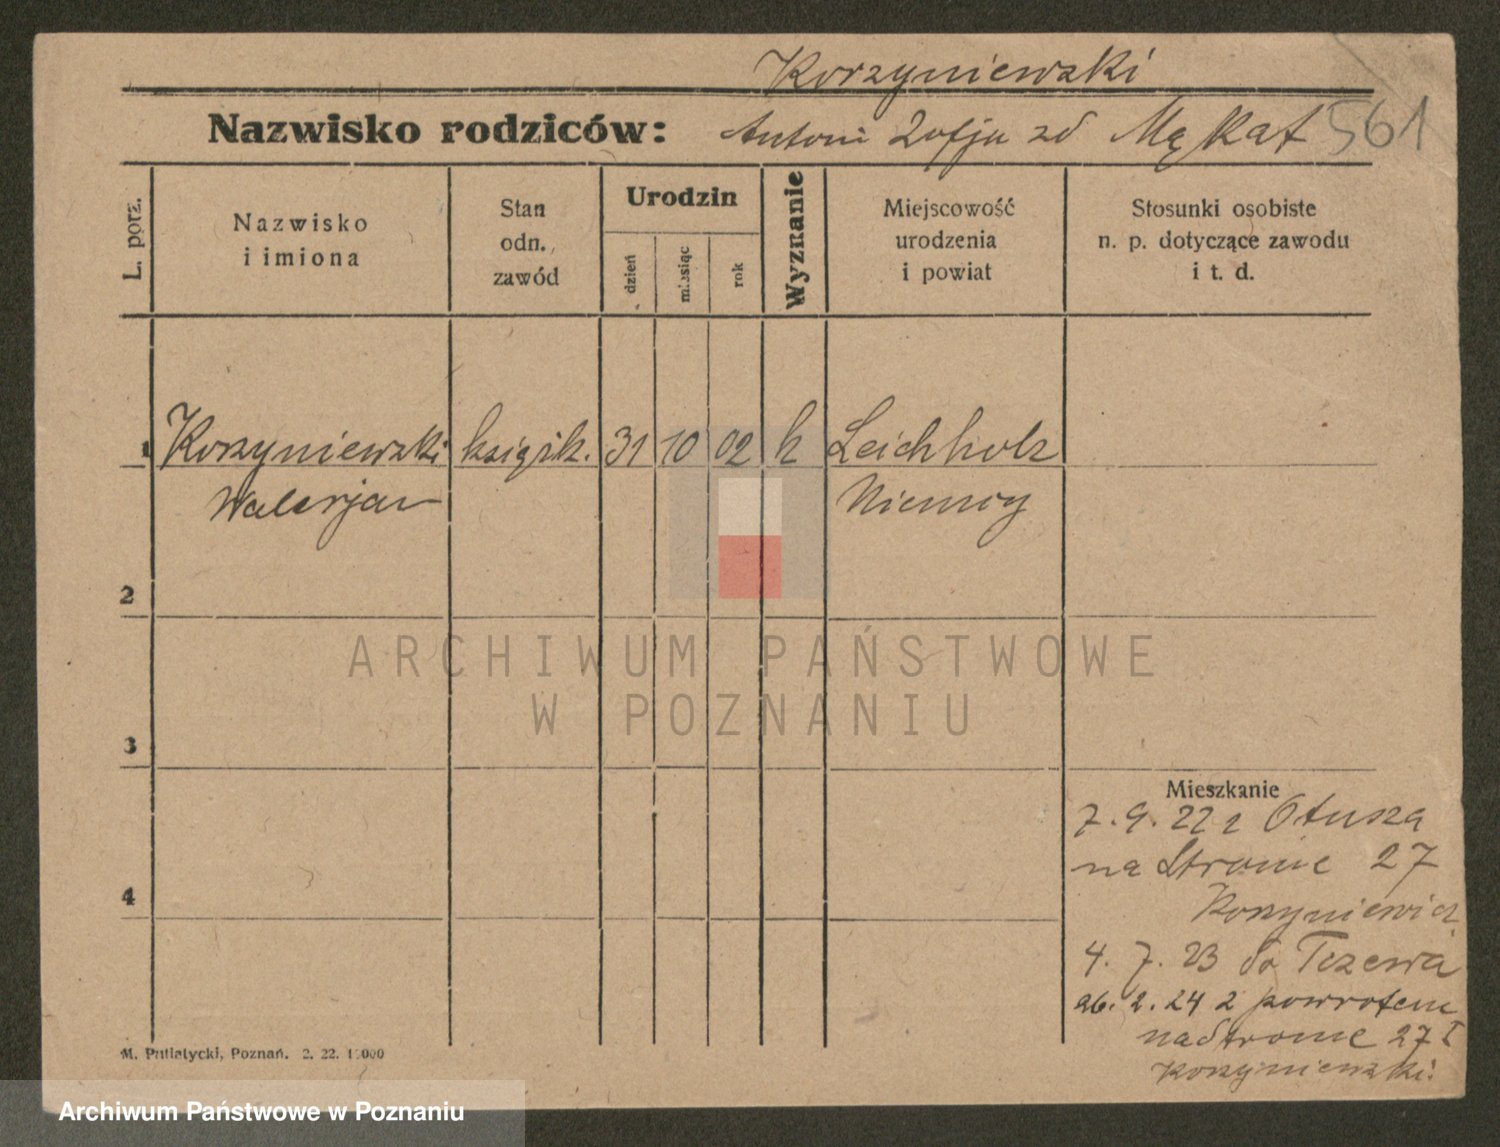 Korzyniewski
Nazwisko rodziców: Antoni Zofja zd Mękat 561
L. porz.
Nazwisko
i imiona
Stan
odn.
zawód
Urodzin
dzień
miesiąc
rok
Wyznanie
Miejscowość
urodzenia
i powiat
Stosunki osobiste
n. p. dotyczące zawodu
i t. d.
1 Korzyniewski książk. 31 10 02 k Leichholz
Walerjan Niemcy
2
ARCHIWUM PAŃSTWOWE
W POZNANIU
3
Mieszkanie
7. 9. 22 z Otusza
na Stromie 27
4
Korzyniewicz
4. 7. 23 do Tczewa
26. 2. 24 z powrotem
nadstromie 27 I
Korzyniewski
M. Putiatycki, Poznań. 2. 22. 1 000
Archiwum Państwowe w Poznaniu